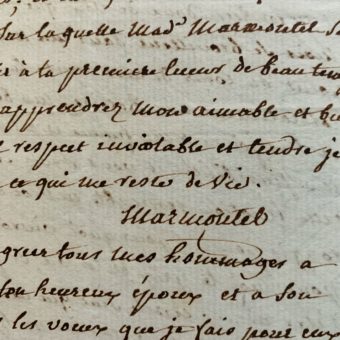 Sur laquelle Mad.e Marmontel
à la premiere lueur de beau
apprendrez mon aimable et
respect inviolable et tendre je
ce qui me reste de vie.
Marmontel
tous mes hommages a
heureux époux et a son
les voeux que je fais pour eux